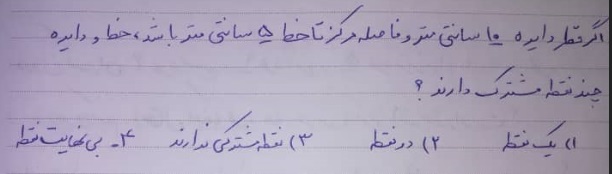 اگر قطر دایره ۱۰ سانتی متر و فاصله مرکز تا خط ۵ سانتی متر باشد، خط و دایره
چند نقطه مشترک دارند ؟
۱) یک نقطه ۲) دو نقطه ۳) نقطه مشترکی ندارند ۴ـ بی نهایت نقطه